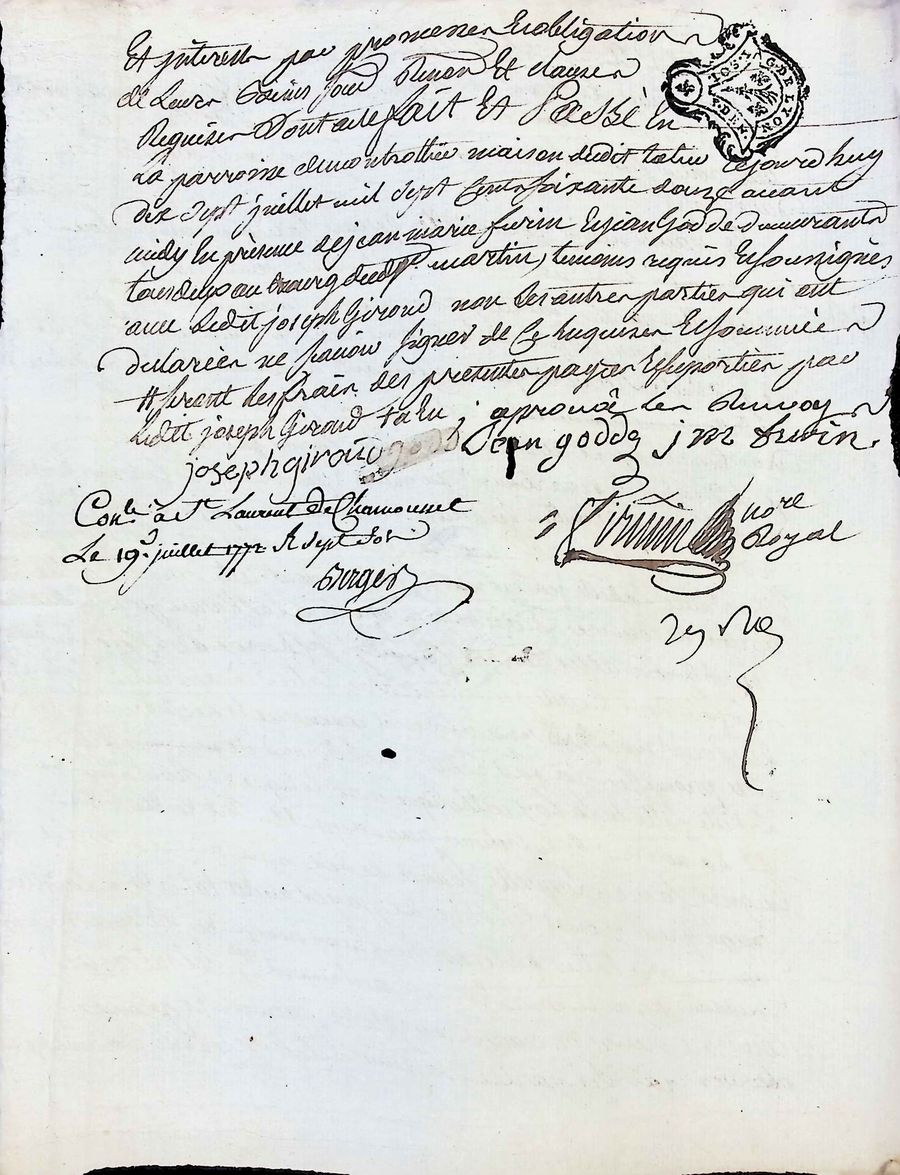 Et interest par promesses Et obligations
de Leurs biens sous Renon Et clauses
Requises Dont acte fait Et Passé En
G. DE LYON
La parroisse maison dudit talu Cejourd'huy
dix sept juillet mil sept Cent soixante douze avant
midy En présence de jean marie furin Et jean Godde demeurants
tous deux au bourg dudt St. martin, temoins requis Et soussignés
avec Ledit joseph Giroud non Les autres parties qui ont
declarées ne scavoir signer de Ce Enquises Et sommées
# seront Les frais des presentes payes Et suportés par
Ledit joseph Giroud talu ; aprouvé Les Renvoy
joseph giroud Jean godde j m furin.
Conlé. a St. Laurent De Chamousset
Le 19e. juillet 1772 R sept sols
nore
Royal